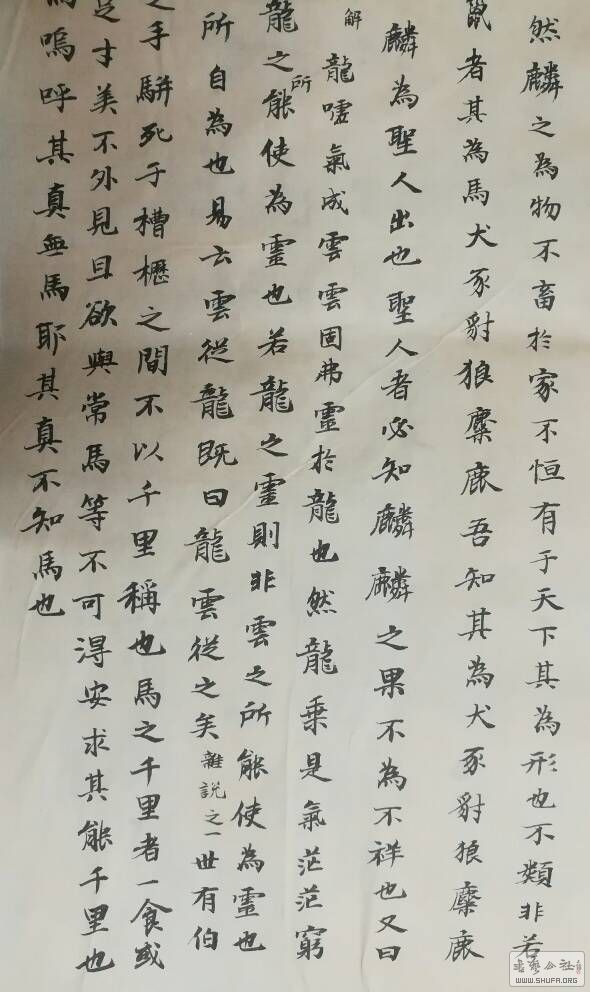 然麟之為物不畜於家不恒有于天下其為形也不類非若
者其為馬犬豕豺狼麋鹿吾知其為犬豕豺狼麋鹿
麟為聖人出也聖人者必知麟麟之果不為不祥也又曰
解
龍噓氣成雲雲固弗靈於龍也然龍乗是氣茫茫窮
所
龍之能使為靈也若龍之靈則非雲之所能使為靈也
所自為也易云雲従龍既曰龍雲従之矣雜說之一世有伯
之手駢死于槽櫪之間不以千里稱也馬之千里者一食或
足才美不外見且欲與常馬等不可得安求其能千里也
嗚呼其真無馬耶其真不知馬也
WWW.SHUFA.ORG